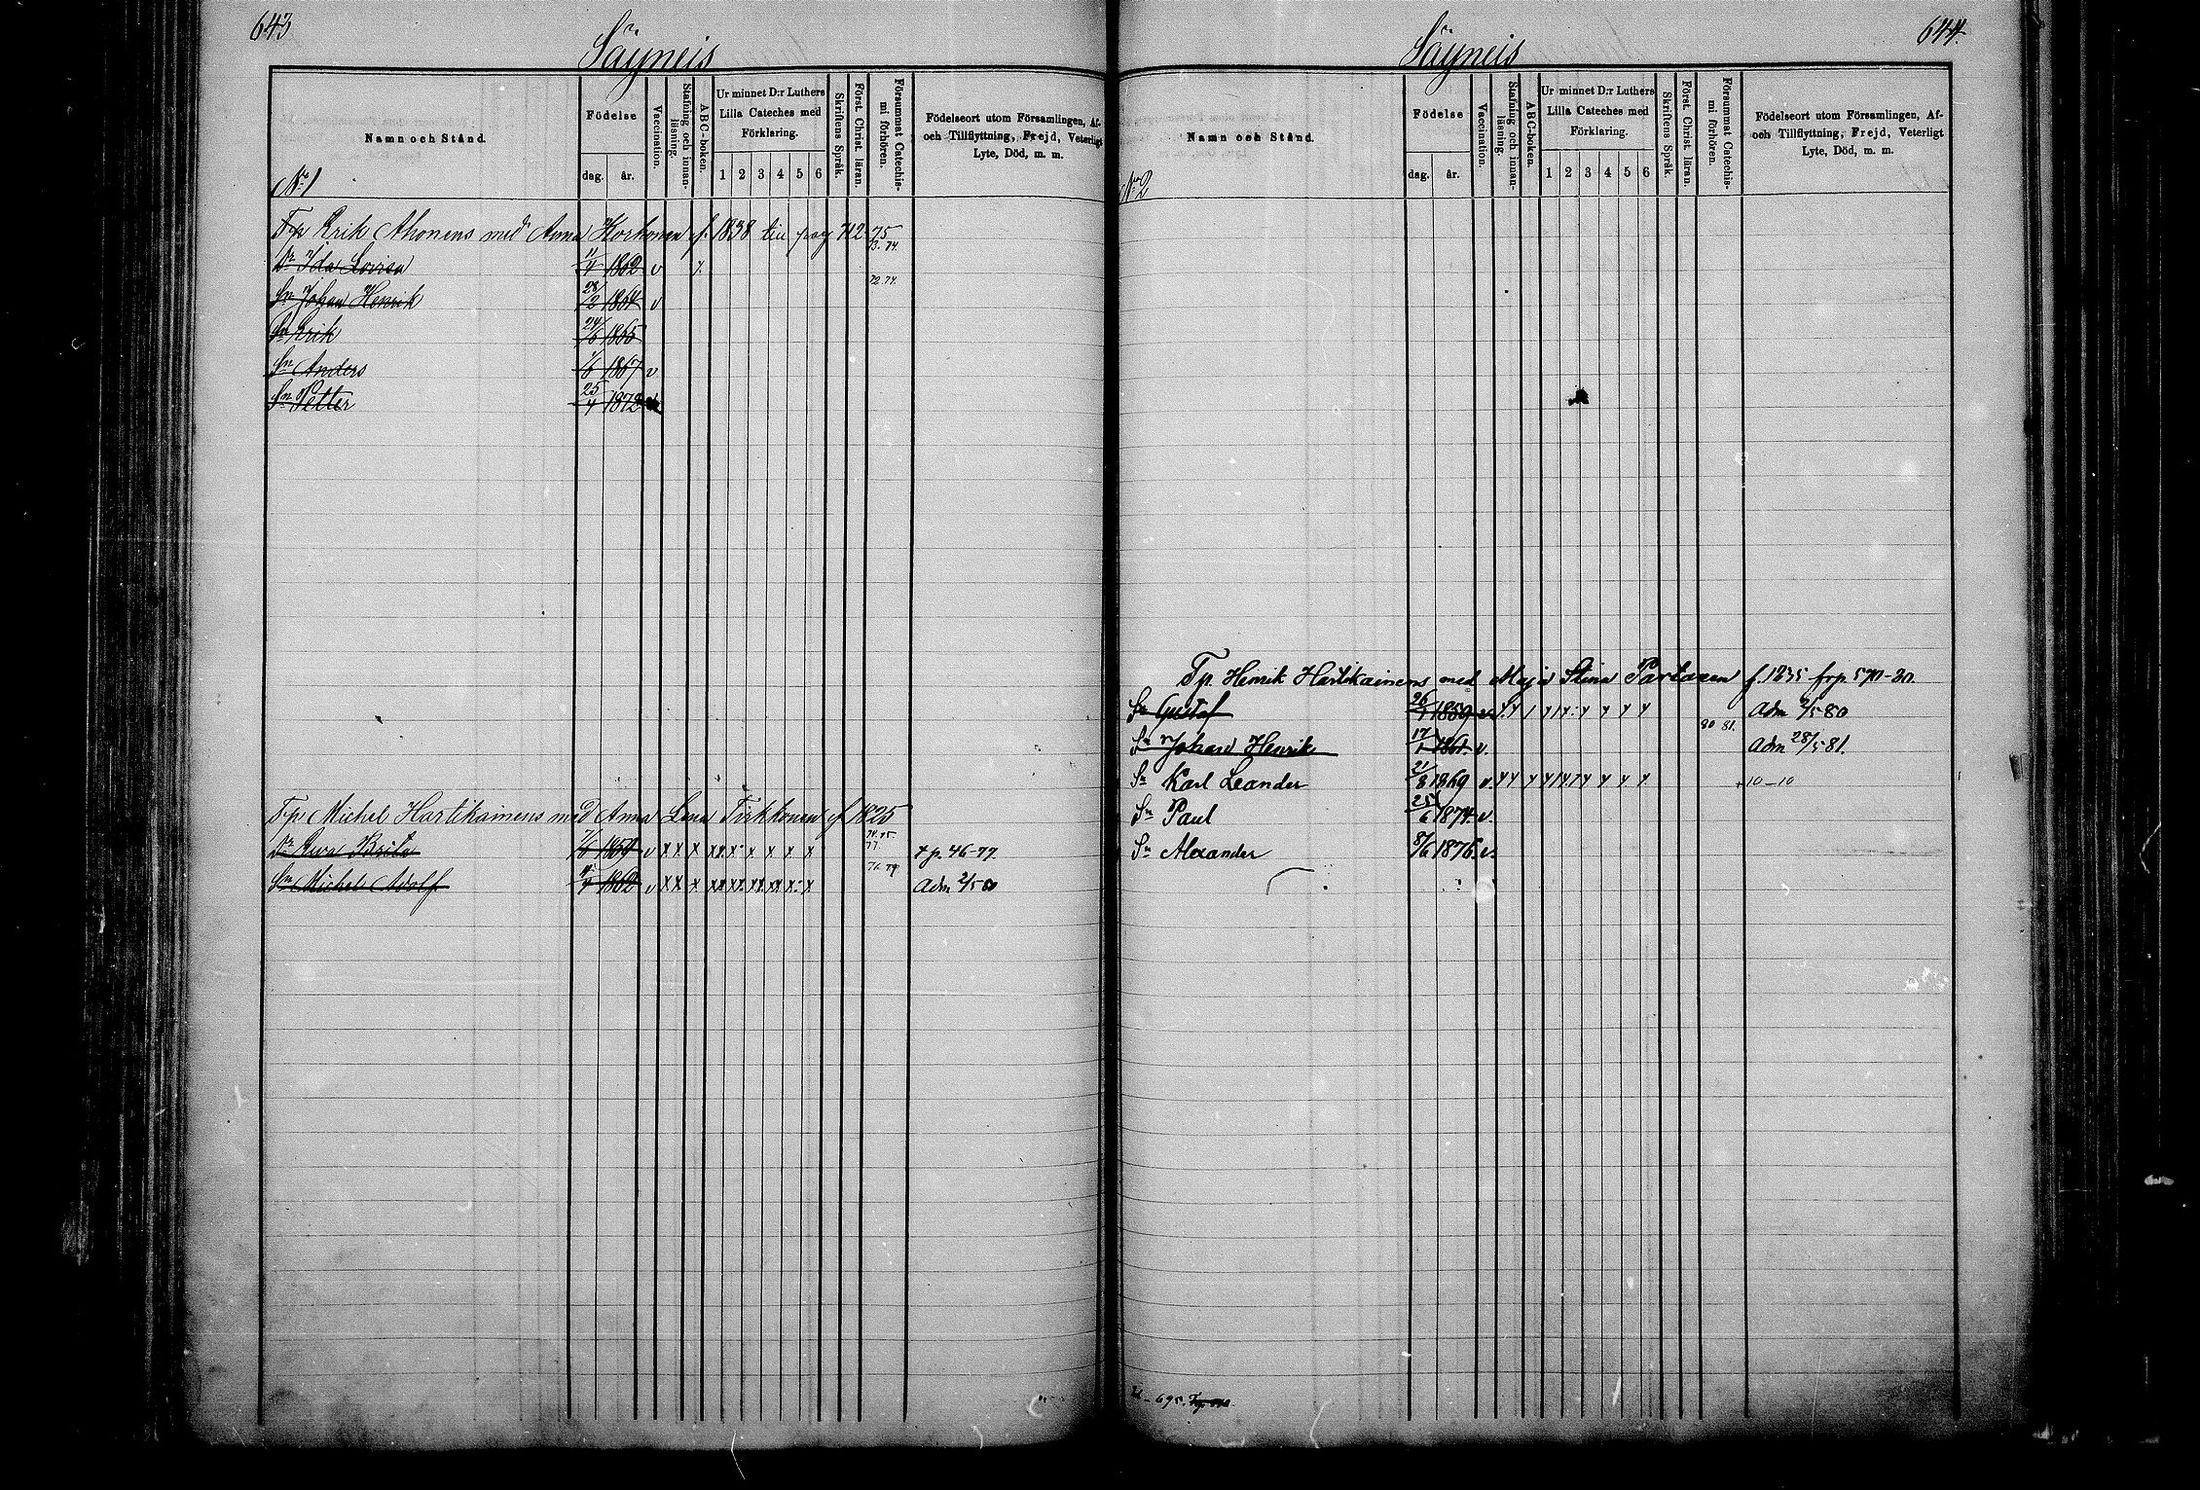 643
Säyneis
Namn och Stånd.
Födelse
dag.
år.
Vaccination.
Stafning och innanläsning.
ABC-boken.
Ur minnet D:r Luthers
Lilla Cateches med
Förklaring.
1 2 3 4 5 6
Skriftens Språk.
Först. Christ. läran.
Försummat Catechismi förhören.
Födelseort utom Församlingen, Af-
och Tillflyttning, Frejd, Veterligt
Lyte, Död, m. m.
No 1
Tp Erik Ahonens med Anna Korhonen f. 1838 till pag 712 75
Dr Ida Lovisa 1862 v 73. 74.
Sn Johan Henrik 28/2 1864 v 72. 74.
Sn Erik 24/6 1865
Sn Anders 1/6 1867 v
Sn Petter 25/4 1872
Tp Michel Hartikainens med Anna Lena Tirkkonen f 1825
Dr Eva Brita 7/6 1859 v x x x x x x x x x 74. 75. 77. + p. 46-77.
Sn Michel Adolf 1862 v x x x x x x x x x 76 79 Adm 2/5 80
644.
Säyneis
Namn och Stånd.
Födelse
dag.
år.
Vaccination.
Stafning och innanläsning.
ABC-boken.
Ur minnet D:r Luthers
Lilla Cateches med
Förklaring.
1 2 3 4 5 6
Skriftens Språk.
Först. Christ. läran.
Försummat Catechismi förhören.
Födelseort utom Församlingen, Af-
och Tillflyttning, Frejd, Veterligt
Lyte, Död, m. m.
No 2
Tp. Henrik Hartikainens med Maja Stina Partanen f. 1835 frp 570-80.
Sn Gustaf 26/1 1859 v. Adm 2/5 80
Sn Johan Henrik 17/1 1861 v. 80 81. Adm 28/5 81.
Sn Karl Leander 21/8 1869 v. + 10-10
Sn Paul 25/6 1874 v.
Sn Alexander 8/6 1876 v.
695.